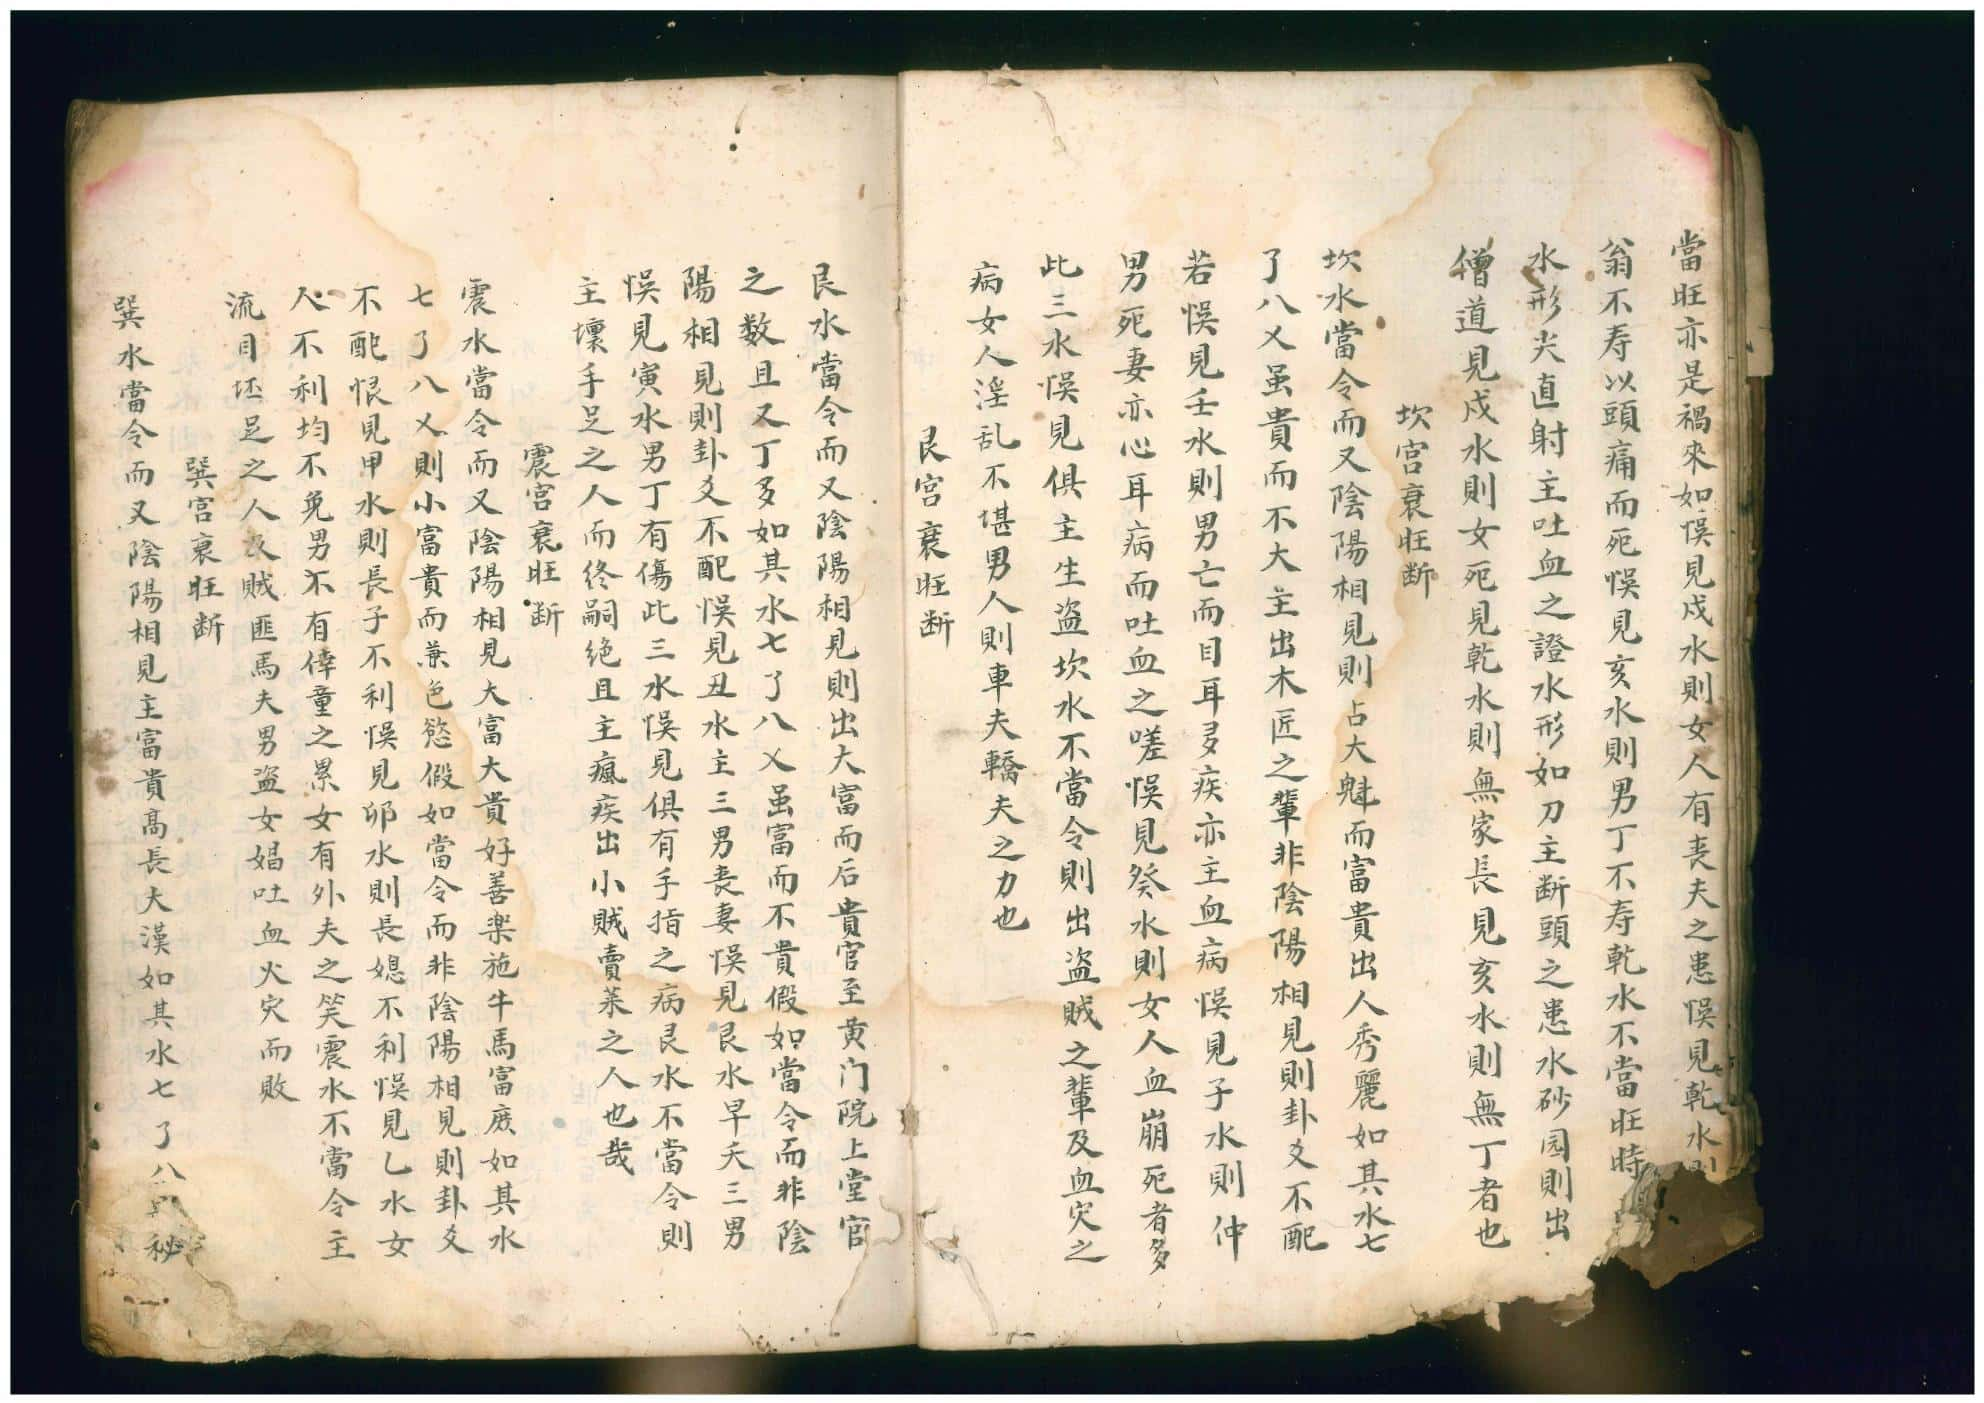 當旺亦是禍來如悞見戍水則女人有喪夫之患悞見乾水則
翁不寿以頭痛而死悞見亥水則男丁不寿乾水不當旺時
水形尖直射主吐血之證水形如刀主断頭之患水砂园則出
僧道見戍水則女死見乾水則無家長見亥水則無丁者也
坎宫衰旺断
坎水當令而又陰陽相見則占大魁而富貴出人秀麗如其水七
了八乂虽貴而不大主出木匠之輩非陰陽相見則卦爻不配
若悞見壬水則男亡而目耳多疾亦主血病悞見子水則仲
男死妻亦心耳病而吐血之嗟悞見癸水則女人血崩死者多
此三水悞見俱主生盗坎水不當令則出盗賊之輩及血灾之
病女人淫乱不堪男人則車夫轎夫之力也
艮宫衰旺断
艮水當令而又陰陽相見則出大富而后貴官至黄门院上堂官
之数且又丁多如其水七了八乂虽富而不貴假如當令而非陰
陽相見則卦爻不配悞見丑水主三男丧妻悞見艮水早夭三男
悞見寅水男丁有傷此三水悞見俱有手指之病艮水不當令則
主壞手足之人而終嗣绝且主瘋疾出小賊賣菜之人也哉
震宫衰旺断
震水當令而又陰陽相見大富大貴好善楽施牛馬富庶如其水
七了八乂則小富貴而兼色慾假如當令而非陰陽相見則卦爻
不配悮見甲水則長子不利悞見卯水則長媳不利悞見乙水女
人不利均不免男不有俥童之累女有外夫之笑震水不當令主
流目坯足之人及賊匪馬夫男盗女娼吐血火灾而敗
巽宫衰旺断
巽水當令而又陰陽相見主富貴髙長大漢如其水七了八